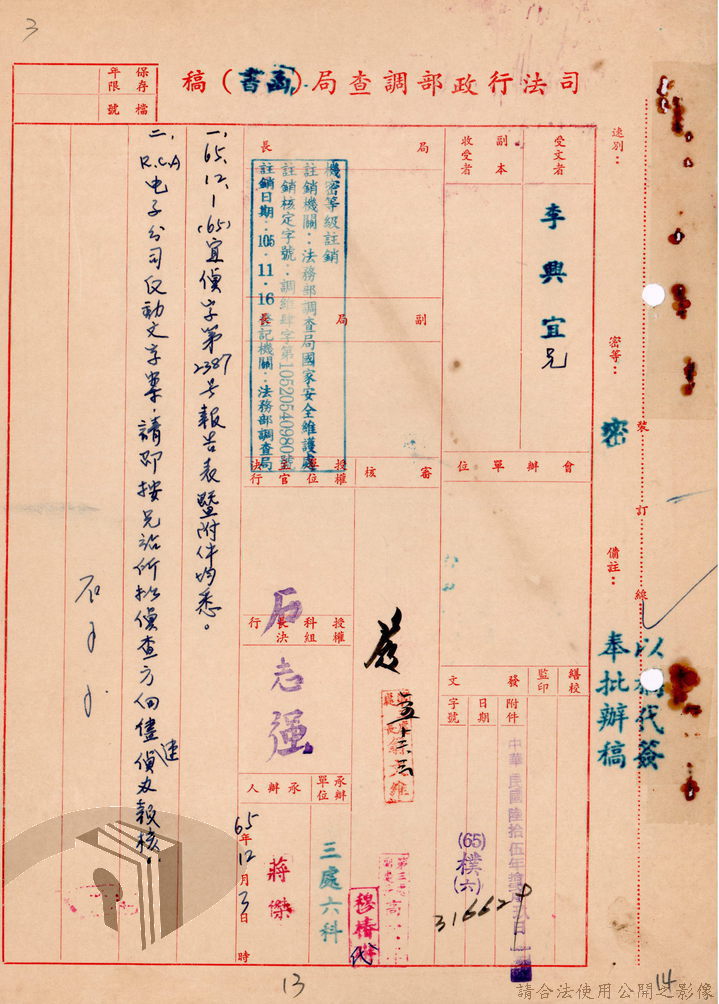 3
司法行政部調查局(書函)稿
保存年限
檔號
速別：
密等：
密
備註：
以稿代簽
奉批辦稿
裝訂線
受文者
李興宜兄
副本收受者
會辦單位
繕校
監印
發文
附件
日期
字號
中華民國陸拾伍年拾
(65)樸(六)
局長
副局長
審核
授權單位主官決行
授權科組長決行
石志強
機密等級註銷
註銷機關：法務部調查局國家安全維護處
註銷核定字號：調維肆字第10520540980號
註銷日期：105.11.16登記機關：法務部調查局
承辦單位
三處六科
承辦人
蔣傑
代
65年12月3日 時
一、65.12.1(65)宜偵字第2387號報告表暨附件均悉。
二、R.C.A电子公司反動文字案，請即按兄站所拟偵查方向儘速偵办報核。
13
14
請合法使用公開之影像